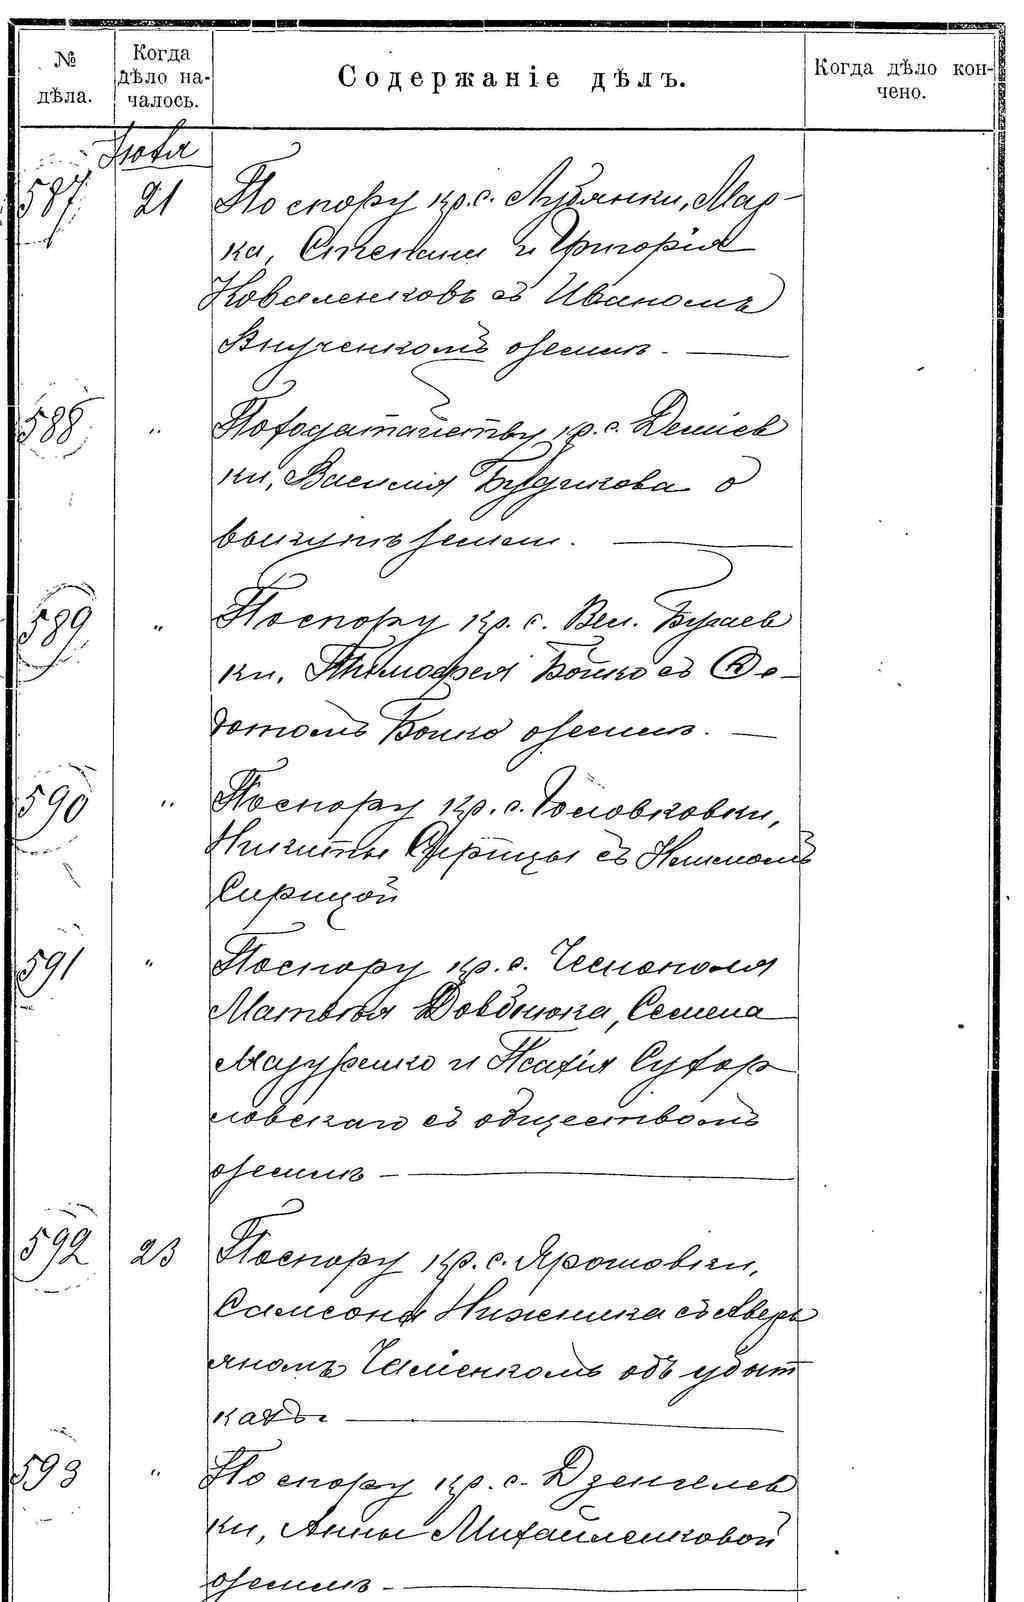 № дѣла.
Когда дѣло на-
чалось.
Содержаніе дѣлъ.
Когда дѣло кон-
чено.
587 21 По спору кр. с. Лубянки, Мар-
ка, Степана и Григорія
Коваленковъ съ Иваномъ
Внученкомъ о землѣ.
588 " По ходатайству кр. с.
ки, Василія Будникова о
выкупѣ земли.
589 " По спору кр. с. Вел. Бугаев
ки, Тимофея Бойко съ Ѳе-
дотомъ Бойко о землѣ.
590 " По спору кр. с. Головковки,
Никиты съ
Сирицой
591 " По спору кр. с. Чеснополя
Матвѣя Довбнюка, Семена
Мазуренко и Сухор
ловскаго съ обществомъ
о землѣ
592 23 По спору кр. с. Ярошовки,
Самсона Нижника съ Аверь
яномъ объ убыт
кахъ
593 " По спору кр. с. Дзенгелев
ки, Анны Михайленковой
о землѣ